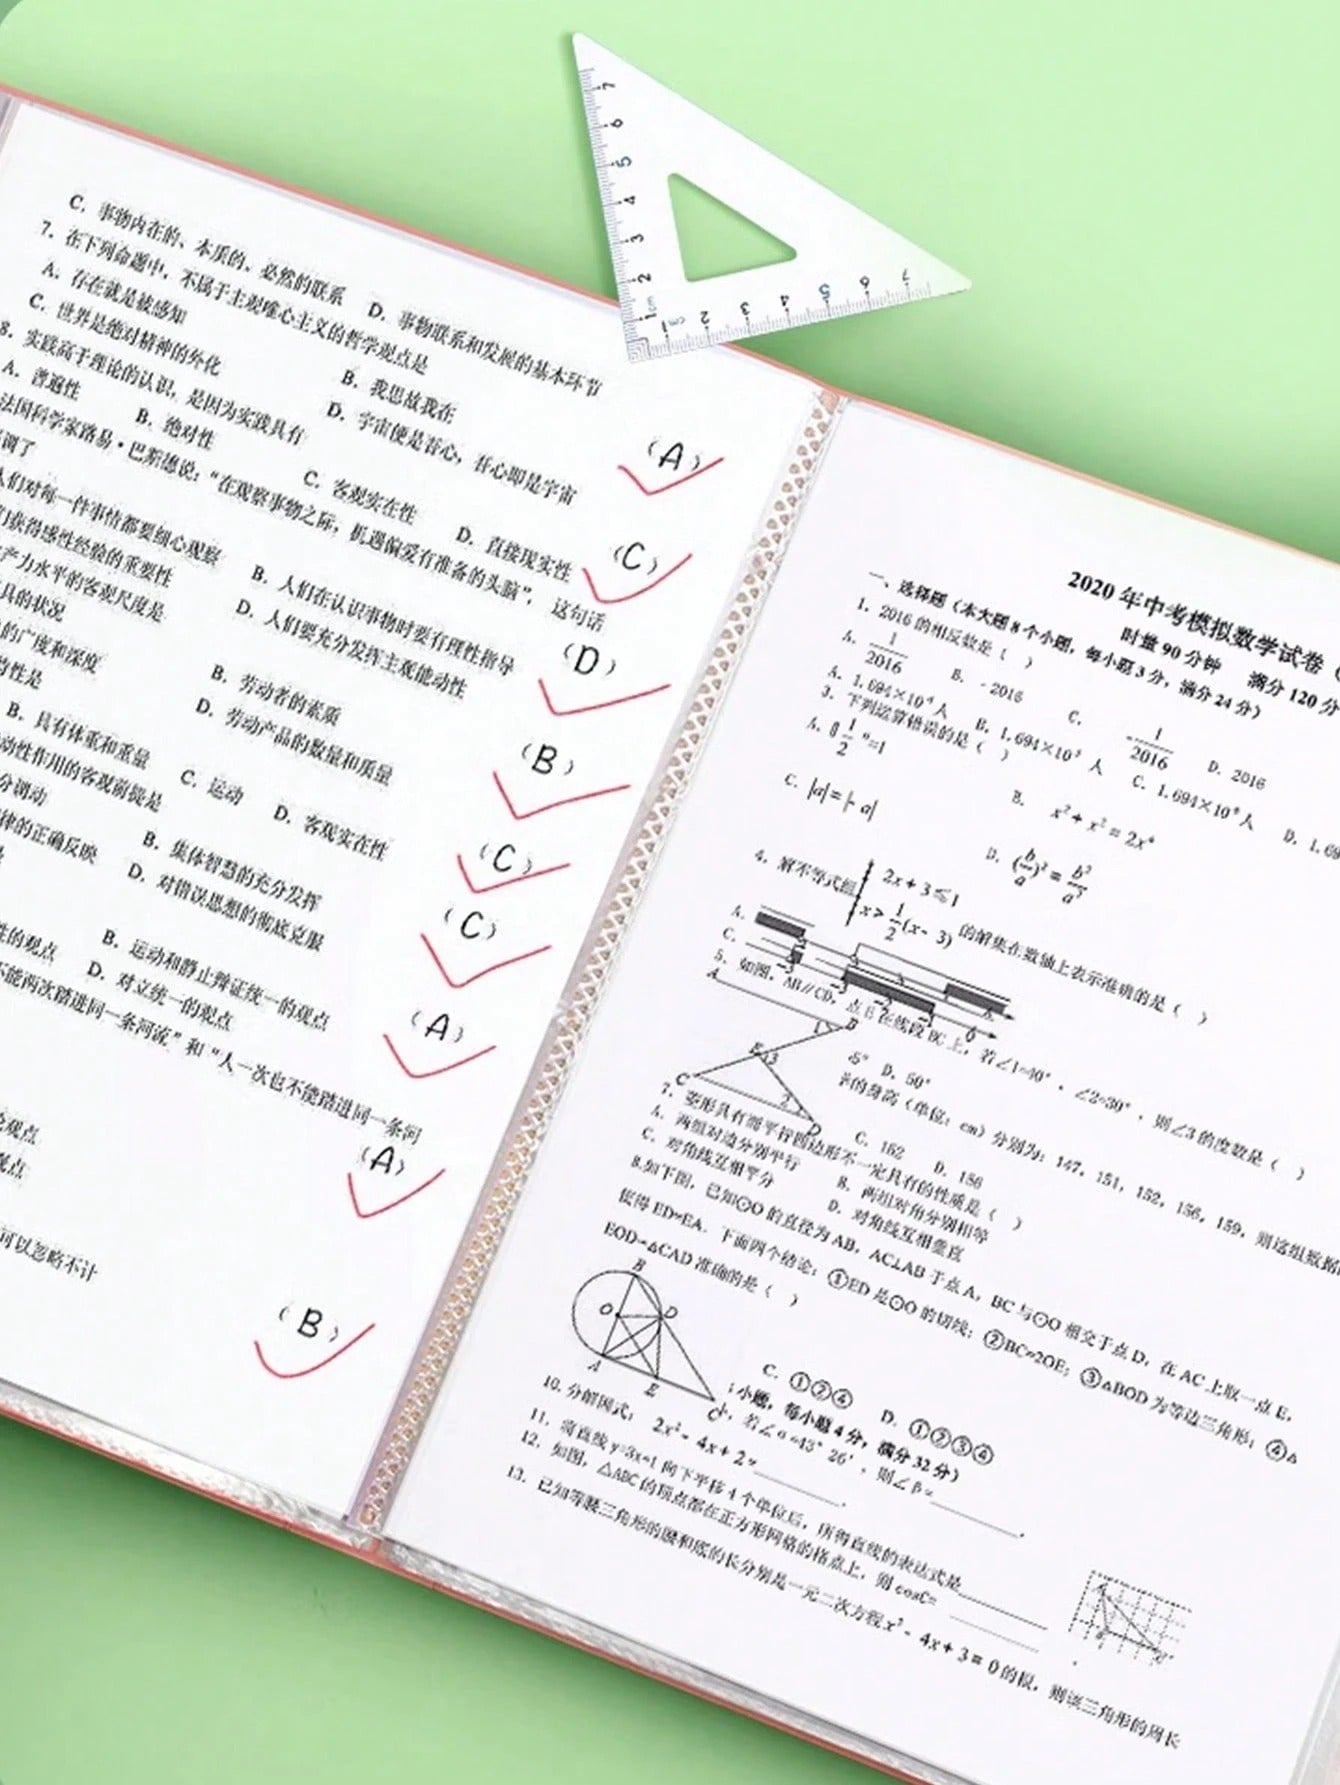 C. 事物内在的、本质的、必然的联系 D. 事物联系和发展的基本环节
7. 在下列命题中，不属于主观唯心主义的哲学观点是
A. 存在就是被感知 B. 我思故我在
C. 世界是绝对精神的外化 D. 宇宙便是吾心，吾心即是宇宙
(A)
8. 实践高于理论的认识，是因为实践具有
A. 普遍性 B. 绝对性 C. 客观实在性 D. 直接现实性
(C)
法国科学家路易·巴斯德说：“在观察事物之际，机遇偏爱有准备的头脑”，这句话
调了
人们对每一件事情都要细心观察 B. 人们在认识事物时要有理性指导
获得感性经验的重要性 D. 人们要充分发挥主观能动性
(D)
产力水平的客观尺度是
具的状况 B. 劳动者的素质
的广度和深度 D. 劳动产品的数量和质量
(B)
性是
B. 具有体重和重量 C. 运动 D. 客观实在性
(C)
动性作用的客观前提是
分调动 B. 集体智慧的充分发挥
律的正确反映 D. 对错误思想的彻底克服
(C)
性的观点 B. 运动和静止辩证统一的观点
D. 对立统一的观点
(A)
不能两次踏进同一条河流”和“人一次也不能踏进同一条河
观点
观点
(A)
可以忽略不计
(B)
2020年中考模拟数学试卷（
时量90分钟 满分120分
一、选择题（本大题8个小题，每小题3分，满分24分）
1. 2016的相反数是（ ）
A. 1/2016 B. -2016 C. -1/2016 D. 2016
A. 1.694×10⁴人 B. 1.694×10⁵人 C. 1.694×10⁶人 D. 1.69
3. 下列运算错误的是（ ）
B. x²+x²=2x⁴
C. |a|=|-a| D. (b/a)²=b²/a²
4. 解不等式组 2x+3≤1 x>1/2(x-3) 的解集在数轴上表示准确的是（ ）
A.
C.
5. 如图，AB//CD，点E在线段BC上，若∠1=40°，∠2=30°，则∠3的度数是（ ）
5° D. 50°
的身高（单位：cm）分别为：147，151，152，156，159，则这组数据
C. 152 D. 156
7. 菱形具有而平行四边形不一定具有的性质是（ ）
A. 两组对边分别平行 B. 两组对角分别相等
C. 对角线互相平分 D. 对角线互相垂直
8.如下图，已知⊙O的直径为AB，AC⊥AB于点A，BC与⊙O相交于点D，在AC上取一点E，
使得ED=EA. 下面四个结论：①ED是⊙O的切线；②BC=2OE；③△BOD为等边三角形；④△
EOD∽△CAD 准确的是（ ）
C. ①②④ D. ①②③④
小题，每小题4分，满分32分）
若∠α=43°26′，则∠β=
10. 分解因式：2x²-4x+2=
11. 将直线y=3x+1向下平移4个单位后，所得直线的表达式是
12. 如图，△ABC的顶点都在正方形网格的格点上，则cosC=
13. 已知等腰三角形的腰和底的长分别是一元二次方程x²-4x+3=0的根，则该三角形的周长